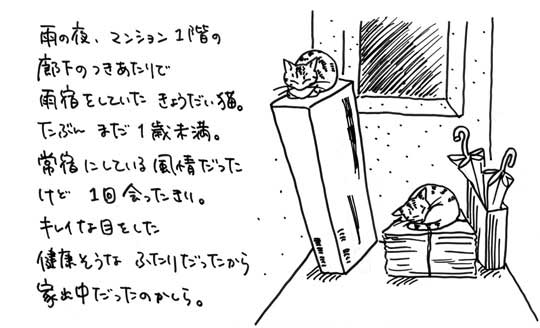 雨の夜、マンション1階の
廊下のつきあたりで
雨宿をしていた きょうだい猫。
たぶん まだ1歳未満。
常宿にしている風情だった
けど 1回会ったきり。
キレイな目をした
健康そうな ふたりだったから
家出中だったのかしら。